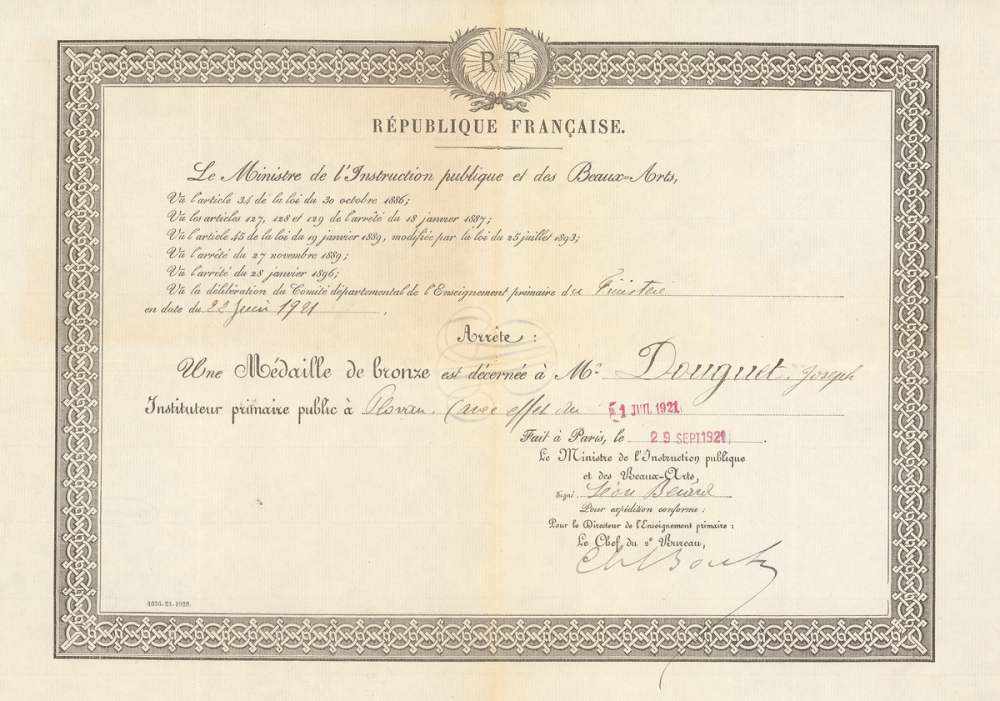 RF
RÉPUBLIQUE FRANÇAISE.
Le Ministre de l'Instruction publique et des Beaux-Arts,
Vu l'article 34 de la loi du 30 octobre 1886;
Vu les articles 127, 128 et 129 de l'arrêté du 18 janvier 1887;
Vu l'article 45 de la loi du 19 janvier 1889, modifiée par la loi du 25 juillet 1893;
Vu l'arrêté du 27 novembre 1889;
Vu l'arrêté du 28 janvier 1896;
Vu la délibération du Comité départemental de l'Enseignement primaire du Finistère
en date du 22 Juin 1921,
Arrête:
Une Médaille de bronze est décernée à Mr Douguet Joseph
Instituteur primaire public à Plovan. (avec effet du 1 JUIL 1921
Fait à Paris, le 29 SEPT 1921.
Le Ministre de l'Instruction publique
et des Beaux-Arts,
Signé: Léon Bérard
Pour expédition conforme:
Pour le Directeur de l'Enseignement primaire:
Le Chef du 2e Bureau,
4036-23-1920.